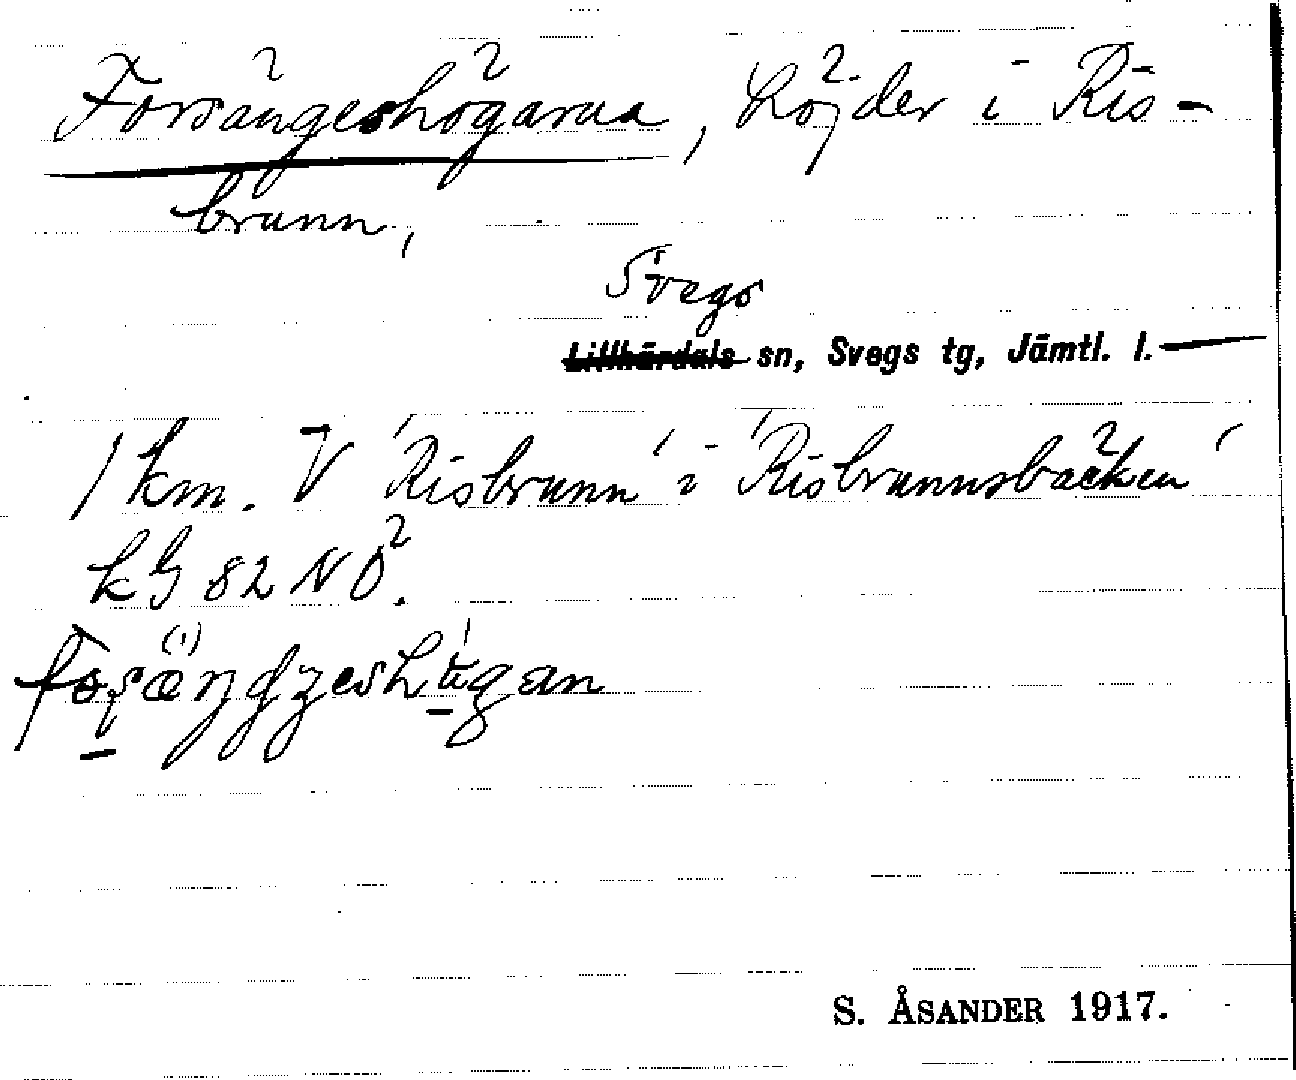 Forsängeshögarna, höjder i Ris-
brunn,
Svegs
Lillhärdals sn, Svegs tg, Jämtl. l.
1 km. V 'Risbrunn' i 'Risbrunnsbäcken'
kG 82 NÖ.
S. ÅSANDER 1917.